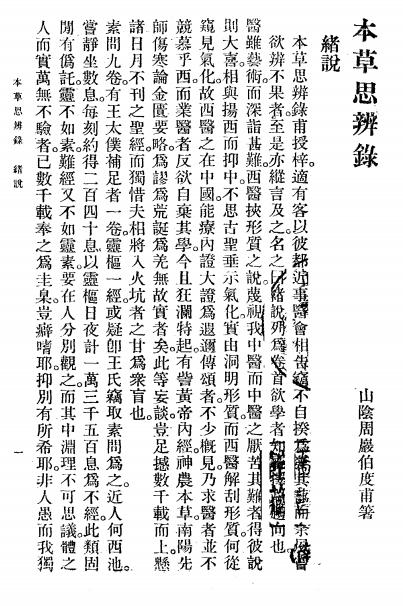 本草思辨錄
山陰周巖伯度甫著
緒說
本草思辨錄甫授梓。適有客以彼都近事醫會相告。竊不自揆
欲辨不果者至是亦縱言及之。名之曰緒說。列爲卷首。欲學者知
醫雖藝術而深詣甚難。西醫挾形質之說。蔑視我中醫。而中醫之厭苦其難者得彼說
則大喜。相與揚西而抑中。不思古聖垂示氣化。實由洞明形質。而西醫解剖形質。何從
窺見氣化。故西醫之在中國。能療內證大證爲遐邇傳頌者。不少槪見。乃求醫者並不
競慕乎西。而業醫者反欲自棄其學。今且狂瀾特起。有訾黃帝內經神農本草南陽先
師傷寒論金匱要略爲謬爲荒誕爲羌無故實者矣。此等妄談。豈足撼數千載而上懸
諸日月不刊之聖經。而獨惜夫相將入火坑者之甘爲衆盲也。
素問九卷有王太僕補足者一卷。靈樞一經或疑卽王氏竊取素問爲之。近人何西池
嘗靜坐數息。每刻約得二百四十息。以靈樞日夜計一萬三千五百息爲不經。此類固
閒有僞託。靈不如素。難經又不如靈素。要在人分別觀之。而其中淵理不可思議。體之
人而實萬無不驗者。已數千載奉之爲圭臬。豈癖嗜耶。抑別有所希耶。非人愚而我獨
本草思辨錄 緒說 一